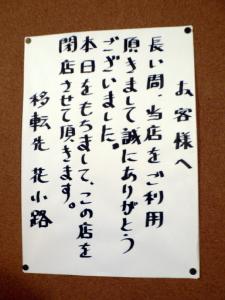 お客様へ
長い間、当店をご利用
頂きまして誠にありがとう
ございました。
本日をもちまして、この店を
閉店させて頂きます。
移転先 花小路